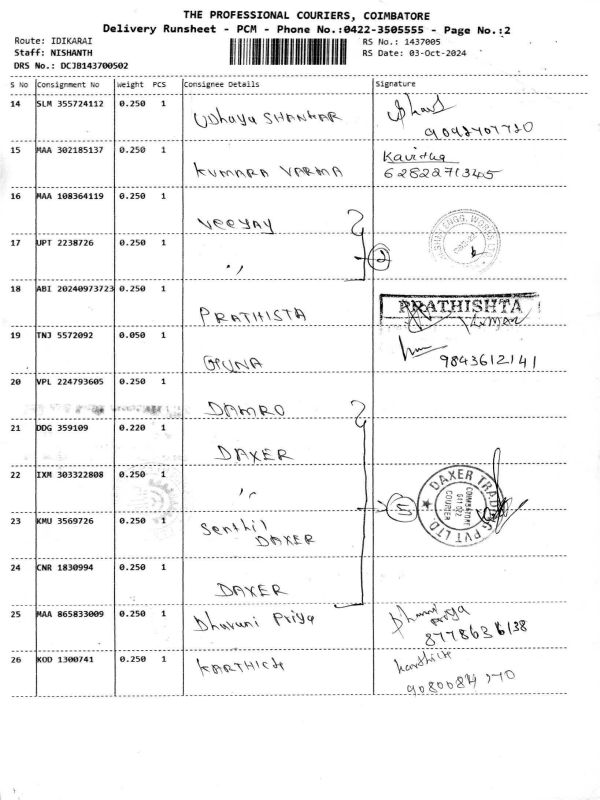 THE PROFESSIONAL COURIERS, COIMBATORE
Delivery Runsheet - PCM - Phone No.:0422-3505555 - Page No.:2
Route: IDIKARAI
RS No.: 1437005
Staff: NISHANTH
RS Date: 03-Oct-2024
DRS No.: DCJB143700502
S No Consignment No Weight PCS Consignee Details Signature
14 SLM 355724112 0.250 1 Udhaya SHANKAR
9092707720
15 MAA 302185137 0.250 1 KUMARA VARMA Kavitha
6282271345
16 MAA 108364119 0.250 1 VEEJAY
17 UPT 2238726 0.250 1 〃 2
18 ABI 20240973723 0.250 1 PRATHISTA PRATHISHTA
19 TNJ 5572092 0.050 1 GUNA 9843612141
20 VPL 224793605 0.250 1 DAMRO
21 DDG 359109 0.220 1 DAXER
22 IXM 303322808 0.250 1 〃 5
DAXER TRADING PVT LTD
COIMBATORE
641 022
COURIER
23 KMU 3569726 0.250 1 Senthil
DAXER
24 CNR 1830994 0.250 1 DAXER
25 MAA 865833009 0.250 1 Dharani Priya Dharani
Priya
8778636138
26 KOD 1300741 0.250 1 KARTHICK karthick